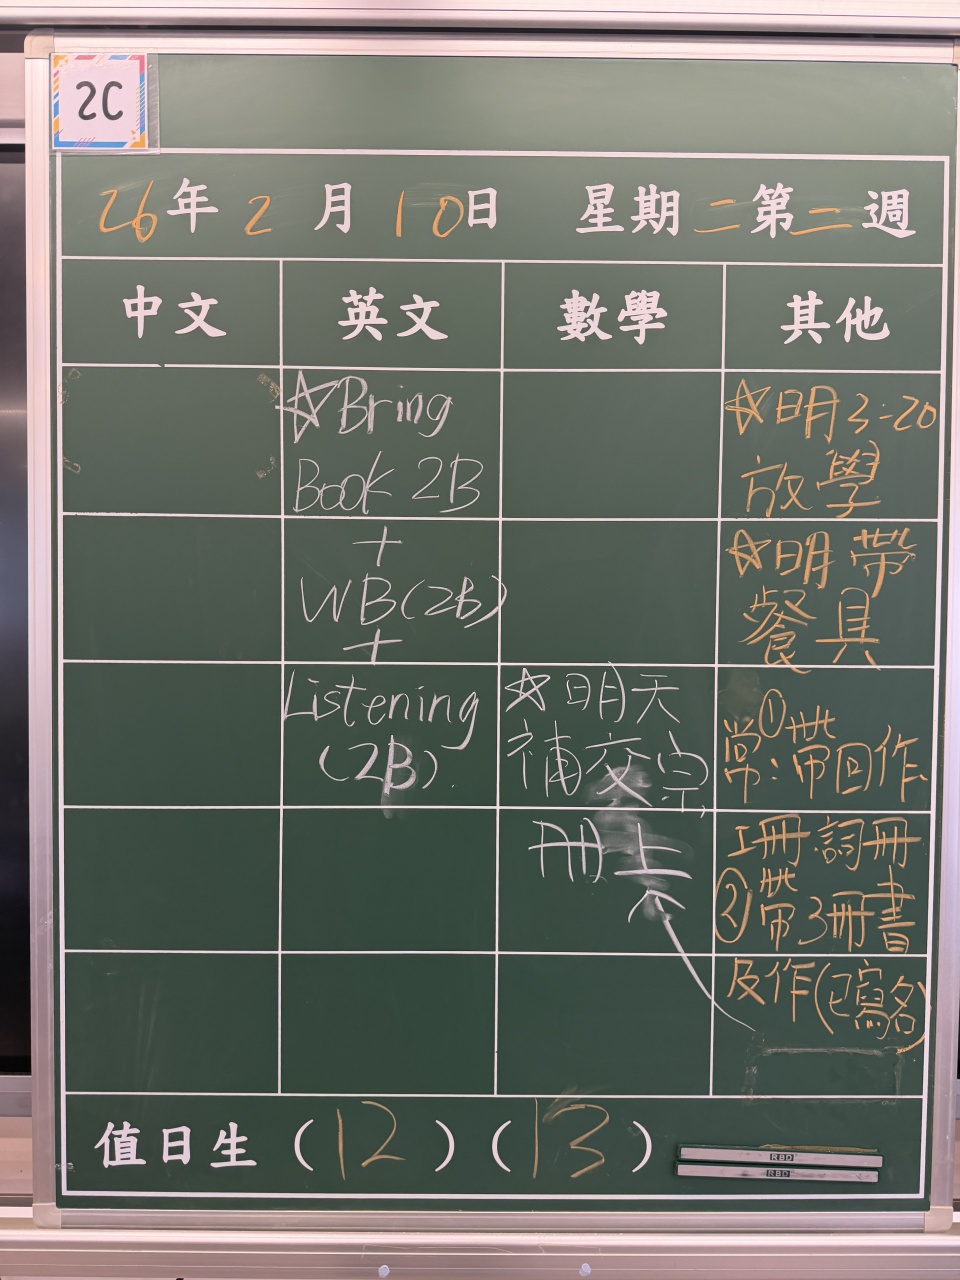 2C
26年2月10日 星期二第二週
中文 英文 數學 其他
☆Bring
Book 2B
+
WB(2B)
+
Listening
(2B).
☆明天
補交
冊上
☆明3:20
放學
☆明帶
餐具
常:①帶回作
冊 詞冊
②帶3冊書
及作(已寫名)
值日生(12)(13)
RBD
RBD